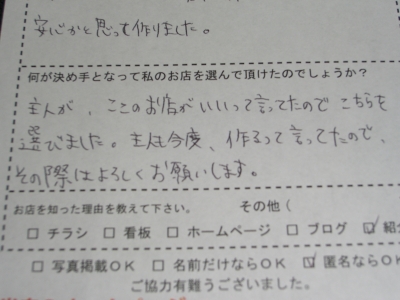 安心かと思って作りました。
何が決め手となって私のお店を選んで頂けたのでしょうか？
主人が、ここのお店がいいって言ってたので こちらを
選びました。主人も今度、作るって言ってたので、
その際はよろしくお願いします。
お店を知った理由を教えて下さい。 その他（
□ チラシ □ 看板 □ ホームページ □ ブログ ☑ 紹
□ 写真掲載OK □ 名前だけならOK ☑ 匿名ならOK
ご協力有難うございました。